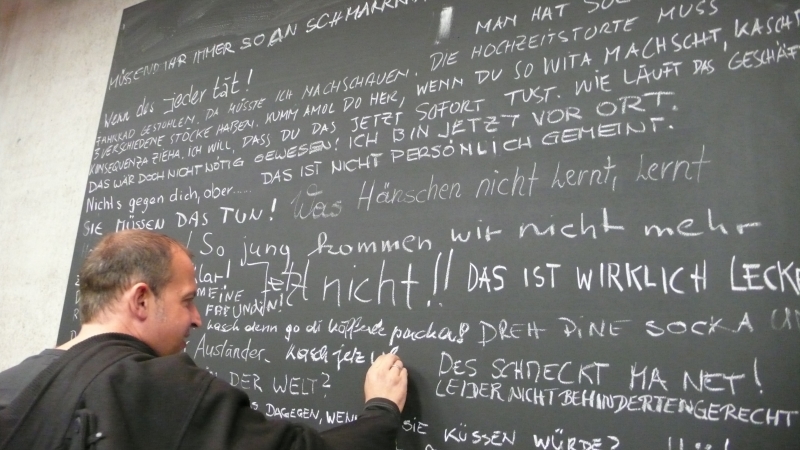 MÜSSEND IHR IMMER SO AN SCHMARRN
MAN HAT
Wenn das jeder tät!
FAHRRAD GESTOHLEN. DA MÜSSTE ICH NACHSCHAUEN. DIE HOCHZEITSTORTE MUSS
3 VERSCHIEDENE STÖCKE HABEN. KUMM AMOL DO HER, WENN DU SO WITA MACHSCHT, KASCH
KONSEQUENZA ZIEHA. ICH WILL, DASS DU DAS JETZT SOFORT TUST. WIE LÄUFT DAS GESCHÄFT
DAS WÄR DOCH NICHT NÖTIG GEWESEN! ICH BIN JETZT VOR ORT.
Nichts gegen dich, aber..... DAS IST NICHT PERSÖNLICH GEMEINT.
SIE MÜSSEN DAS TUN! Was Hänschen nicht lernt, lernt
So jung kommen wir nicht mehr
klar! Jetzt nicht!! DAS IST WIRKLICH LECKE
MEINE
FREUNDIN!
kasch denn go di köfferle packa! DREH DINE SOCKA
Ausländer. kasch jetz
DES SCHMECKT MA NET!
DER WELT? LEIDER NICHT BEHINDERTENGERECHT
DAGEGEN, WENN SIE KÜSSEN WÜRDE?